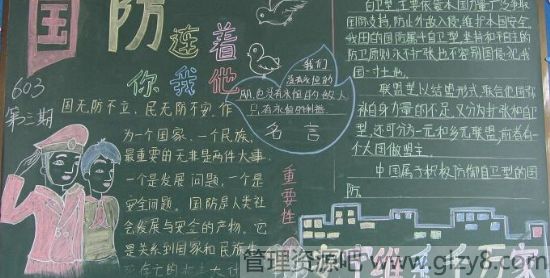 国防连着
你我他
603
第三期
国无防不立，民无防不安。作
为一个国家、一个民族，
最重要的无非是两件大事，
一个是发展问题，一个是
安全问题。国防是人类社
会发展与安全的产物。它
是关系到国家和民族生
死存亡的
重要性
我们
没有永恒的
朋，也没有永恒的敌人
只有永恒的利益
名言
自卫型，主要依靠本国力量，广泛争取
国际支持，防止外敌入侵，维护本国安全，
我国的国防属于自卫型，坚持和平自主的
防卫原则永不扩张也不容别国侵犯我
国一寸土地。
联盟型以结盟形式，联合他国弥
补自身力量的不足，又分为扩张和自卫
型，还可分为一元和多元联盟，前者有一
个大国做盟主。
中国属于积极防御自卫型的国
防
管理资源吧 www.glzy8.com